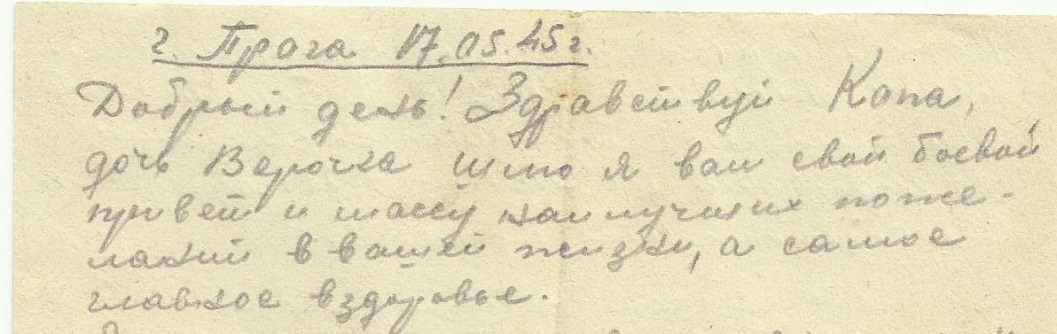 г. Прага 17.05.45 г.
Добрый день! Здравствуй Капа,
дочь Верочка шлю я вам свой боевой
привет и массу наилучших поже-
ланий в вашей жизни, а самое
главное в здоровье.